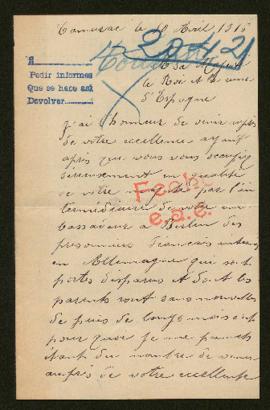 le 8 Avril 1918
20421
A
Pedir informes
Que se hace ask
Devolver
A Sa Majesté
le Roi
d'Espagne
J'ai l'honneur de venir
de votre excellence ayant
appris que vous vous occupez
sérieusement en qualité
de votre par l'in
termédiaire de votre am
bassadeur à Berlin des
prisonniers français internés
en Allemagne qui sont
portés disparus et dont les
parents sont sans nouvelles
depuis de longs mois c'est
pour quoi je me permets
étant du nombre de venir
auprès de votre excellence
Fecho
e.s.e.